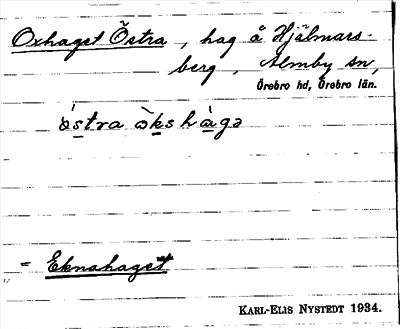 Oxhaget Östra, hag å Hjälmars-
berg, Almby sn,
Örebro hd, Örebro län.
östra òkshàgə
= Eknahaget
KARL-ELIS NYSTEDT 1934.